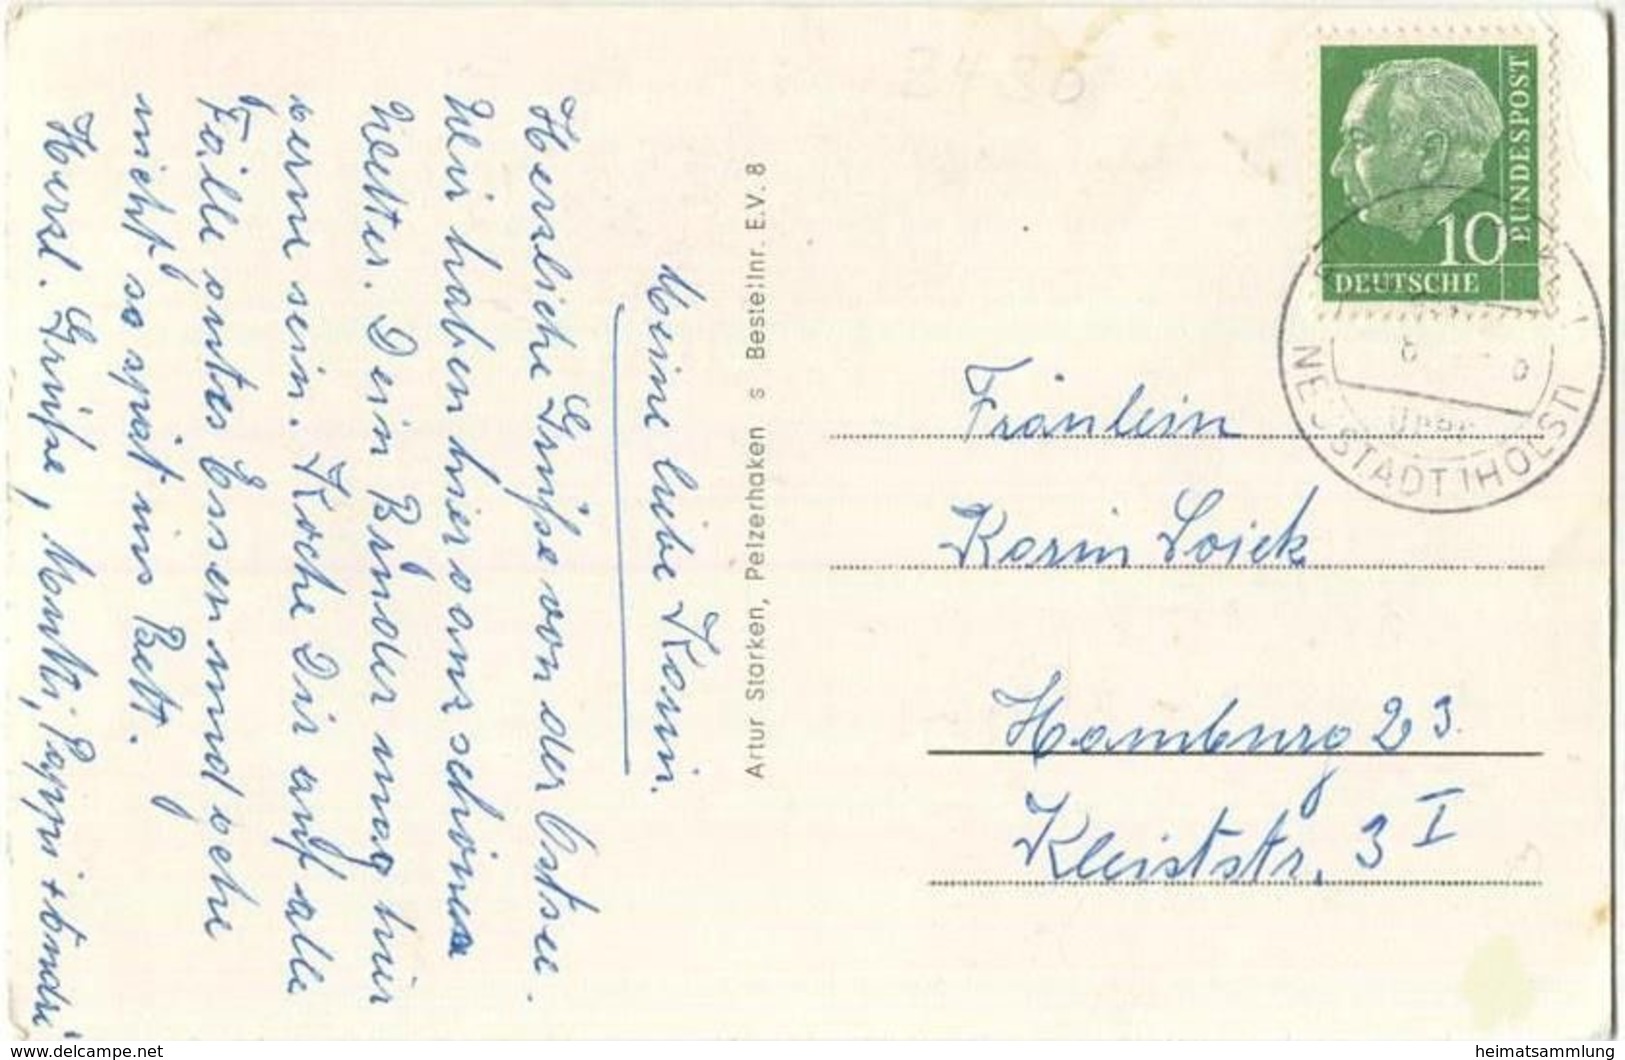 Meine liebe Karin.
Herzliche Grüße von der Ostsee.
Wir haben hier ganz schönes
Wetter. Dein Brüder mag hier
gerne sein. Koche Dir auf alle
Fälle gutes Essen und gehe
nicht so spät ins Bett.
Herzl. Grüße, Mutti, Pappi +
Artur Starken, Pelzerhaken s Bestellnr. E.V. 8
10
DEUTSCHE
BUNDESPOST
NEUSTADT (HOLST)
Fräulein
Karin Loick
Hamburg 23.
Kleiststr. 3 I
www.delcampe.net
heimatsammlung